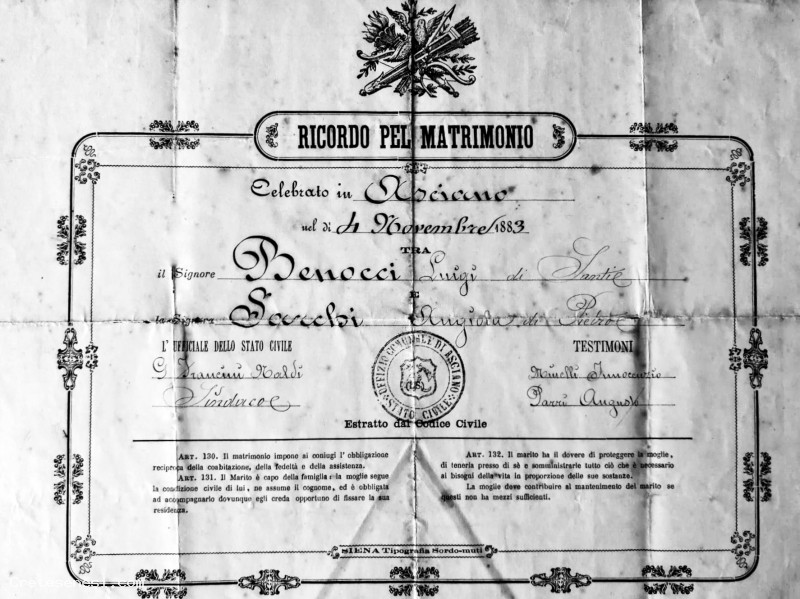 RICORDO PEL MATRIMONIO
Celebrato in Asciano
nel dì 4 Novembre 1883
TRA
il Signore Benocci Luigi di Sante
E
la Signora Sacchi Angiola di Pietro
L'UFFICIALE DELLO STATO CIVILE
TESTIMONI
G Naldi
Sindaco
Minelli Innocenzio
Parri Augusto
UFFIZIO COMUNALE DI ASCIANO
STATO CIVILE
Estratto dal Codice Civile
ART. 130. Il matrimonio impone ai coniugi l'obbligazione
reciproca della coabitazione, della fedeltà e della assistenza.
ART. 131. Il Marito è capo della famiglia: la moglie segue
la condizione civile di lui, ne assume il cognome, ed è obbligata
ad accompagnarlo dovunque egli creda opportuno di fissare la sua
residenza.
ART. 132. Il marito ha il dovere di proteggere la moglie,
di tenerla presso di sè e somministrarle tutto ciò che è necessario
ai bisogni della vita in proporzione delle sue sostanze.
La moglie deve contribuire al mantenimento del marito se
questi non ha mezzi sufficienti.
SIENA Tipografia Sordo-muti